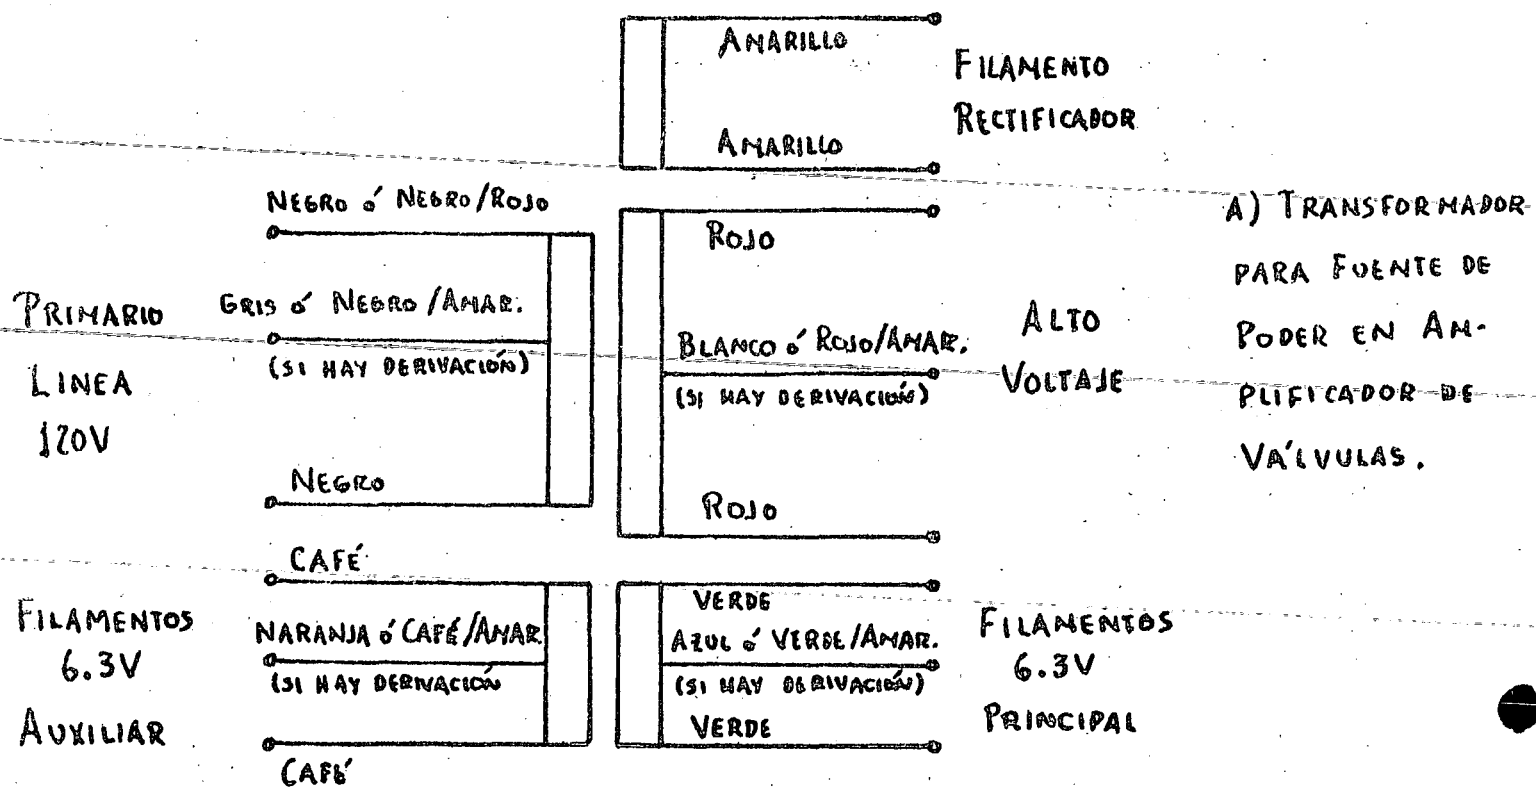 AMARILLO
FILAMENTO
RECTIFICADOR
AMARILLO
NEGRO ó NEGRO/ROJO
GRIS ó NEGRO/AMAR.
(SI HAY DERIVACIÓN)
NEGRO
PRIMARIO
LINEA
120V
ROJO
BLANCO ó ROJO/AMAR.
(SI HAY DERIVACIÓN)
ROJO
ALTO
VOLTAJE
A) TRANSFORMADOR
PARA FUENTE DE
PODER EN AM-
PLIFICADOR DE
VÁLVULAS.
CAFÉ
NARANJA ó CAFÉ/AMAR.
(SI HAY DERIVACIÓN
CAFÉ
FILAMENTOS
6.3V
AUXILIAR
VERDE
AZUL ó VERDE/AMAR.
(SI HAY DERIVACIÓN)
VERDE
FILAMENTOS
6.3V
PRINCIPAL